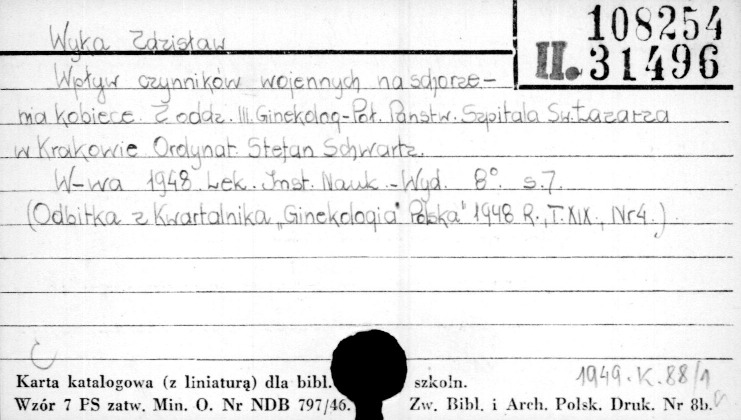 108254
II. 31496
Wyka Zdzisław
Wpływ czynników wojennych na schorze-
nia kobiece. Z oddz. III. Ginekolog-Poł. Państw. Szpitala Św. Łazarza
w Krakowie Ordynat. Stefan Schwartz.
W-wa 1948 Lek. Inst. Nauk.-Wyd. 8°. s.7.
(Odbitka z Kwartalnika „Ginekologia Polska" 1948 R., T. XIX., Nr4.)
1949.K.88/1
Karta katalogowa (z liniaturą) dla bibl. szkoln.
Wzór 7 PS zatw. Min. O. Nr NDB 797/46. Zw. Bibl. i Arch. Polsk. Druk. Nr 8b.